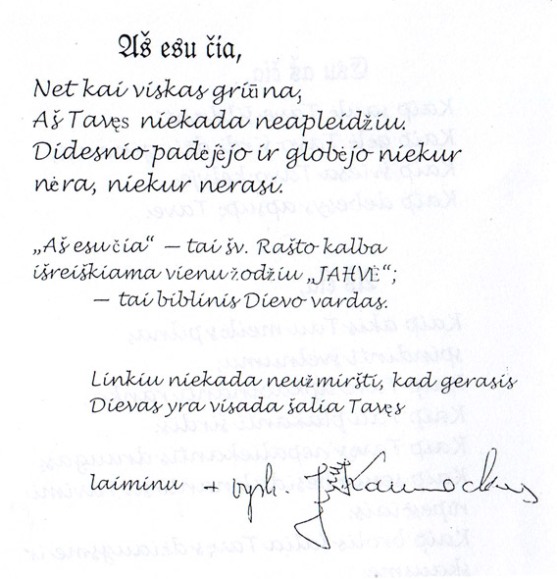 Aš esu čia,
Net kai viskas griūna,
Aš Tavęs niekada neapleidžiu.
Didesnio padėjėjo ir globėjo niekur
nėra, niekur nerasi.
„Aš esu čia“ – tai šv. Rašto kalba
išreiškiama vienu žodžiu „JAHVĖ“;
– tai biblinis Dievo vardas.
Linkiu niekada neužmiršti, kad gerasis
Dievas yra visada šalia Tavęs
laiminu + vysk.